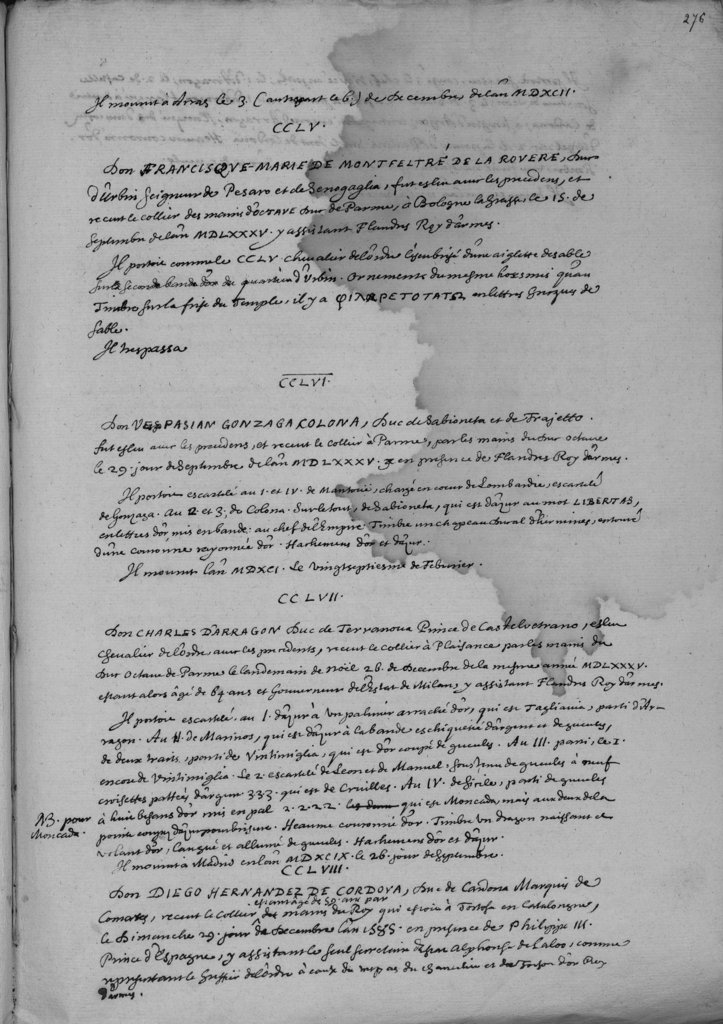 276
Il mourut à Arras le 3. (autrepart le 6.) de Decembre de l'an MDXCII.
CCLV.
Don FRANCISQVE-MARIE DE MONTFELTRÉ DE LA ROVERE, Duc
d'Urbin Seigneur de Pesaro et de Senogaglia, fut esleu avec les precedens, et
receut le collier des mains d'OCTAVE Duc de Parme, à Bologne la Grasse, le 15. de
Septembre de l'an MDLXXXV. y assistant Flandres Roy d'armes.
Il portoit comme le CCLV chevalier de l'ordre brisé d'une aiglette de sable
sur la seconde bande d'or du quartier d'Urbin. Ornements du mesme horsmis qu'au
Timbre sur la frise du Temple, il y a en lettres Grecques de
sable.
Il trespassa
CCLVI.
Don VESPASIAN GONZAGA COLONA, Duc de Sabioneta et de Trajetto.
fut esleu avec les precedens, et receut le collier à Parme, par les mains du Duc Octave
le 29. jour de Septembre de l'an MDLXXXV. en presence de Flandres Roy d'armes.
Il portoit escartelé au I. et IV. de Mantoüe, chargé en coeur de Lombardie, escartelé
de Gonzaga. Au 2 et 3, de Colona. Sur le tout, de Sabioneta, qui est d'azur au mot LIBERTAS,
en lettres d'or, mis en bande: au chef de l'Empire. Timbre un chapeau Ducal d'hermines, entouré
d'une couronne rayonnée d'or. Hachemens d'or et d'azur.
Il mourut l'an MDXCI. Le vingtseptiesme de Febvrier.
CCLVII.
Don CHARLES D'ARRAGON Duc de Terranova Prince de Castelvetrano, esleu
Chevalier de l'ordre avec les precedents, receut le collier à Plaisance par les mains du
Duc Octave de Parme le landemain de Noël 26. de Decembre de la mesme année MDLXXXV.
estant alors âgé de 64 ans et Gouverneur de l'Estat de Milan, y assistant Flandres Roy d'armes.
Il portoit escartelé. au I. d'azur à un palmier arraché d'or, qui est Tagliavia, parti d'Ar-
ragon. Au II. de Marinos, qui est d'azur à la bande eschiquetée d'argent et de gueules,
de deux traits, parti de Vintimiglia, qui est d'or coupé de gueuls. Au III. parti, le 1.
encor de Vintimiglia. Le 2. escartelé de Leon et de Manuel, soustenu de gueuls à neuf
croisettes pattées d'argent 333. qui est de Cruilles. Au IV. de Sicile, parti de gueules
à huit besans d'or mis en pal 2.2.2.2. qui est Moncada, mais aux deux de la
NB. pour
Moncada.
pointe coupez d'azur pour brisure. Heaume couronné d'or. Timbre un dragon naissant et
volant d'or, langué et allumé de gueuls. Hachemens d'or et d'azur.
Il mourut à Madrid en l'an MDXCIX. le 26. jour de Septembre.
CCLVIII.
Don DIEGO HERNANDEZ DE CORDOVA, Duc de Cardona Marquis de
estant âgé de 50. ans par
Comares, receut le Collier des mains du Roy qui estoit à Tortose en Catalongne,
le Dimanche 29. jour de Decembre l'an 1585. en presence de Philippe III.
Prince d'Espagne, y assistant le seul secretaire Alphonse de Laloo, comme
representant le Greffier de l'ordre à cause du trespas du chancelier et de Toison d'or Roy
d'armes.